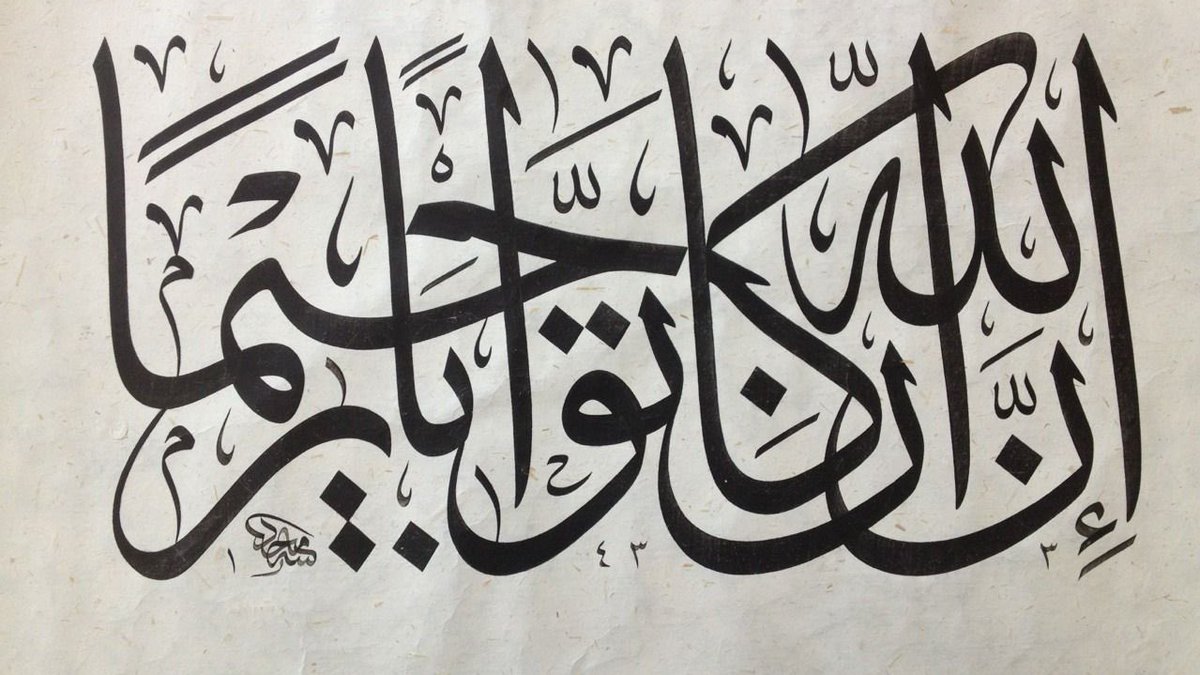 إِنَّ اللهَ كَانَ تَوَّابًا رَحِيمًا
١ ٤٣ ٣